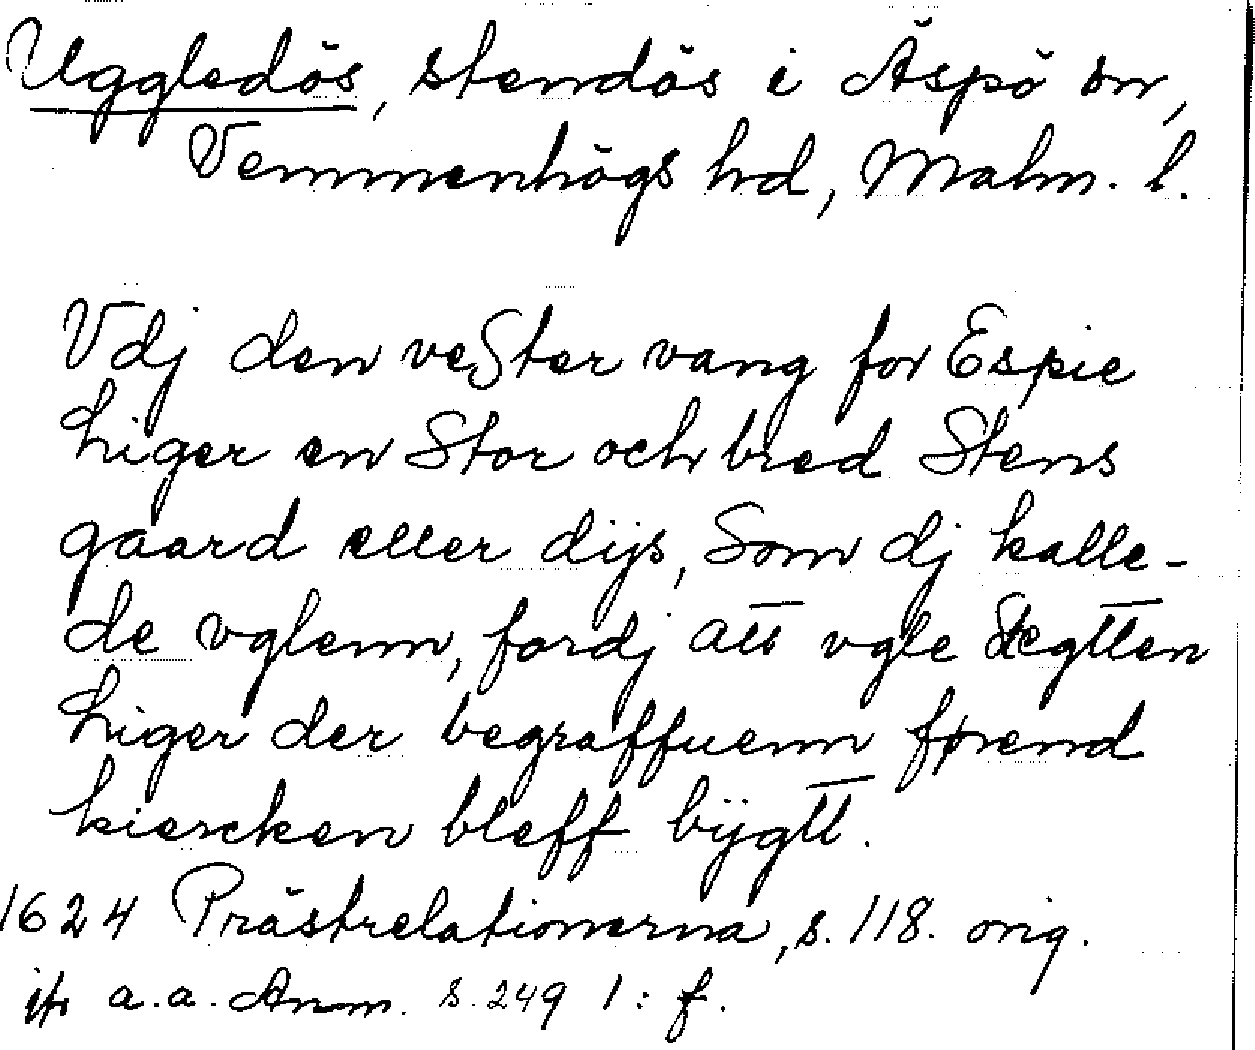 Uggledös, stendös i Äspö sn,
Vemmenhögs hd, Malm. l.
Vdj den veSter vang for Espie
liger en Stor och bred Stens
gaard eller dijs, Som dj kalle-
de vglenn, fordj att vgle Slegtten
liger der begraffuenn førend
kiercken bleff bÿgtt.
1624 Prästrelationerna, s. 118. orig.
jfr a.a. Anm. s. 249 1: f.